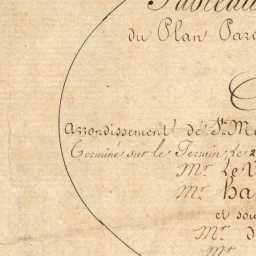 Tableau
du Plan Parc
C
Arrondissement de St. M
Terminé sur le Terrain, le 2
Mr. Le
Mr. ha
et sou
Mr. d
Mr.